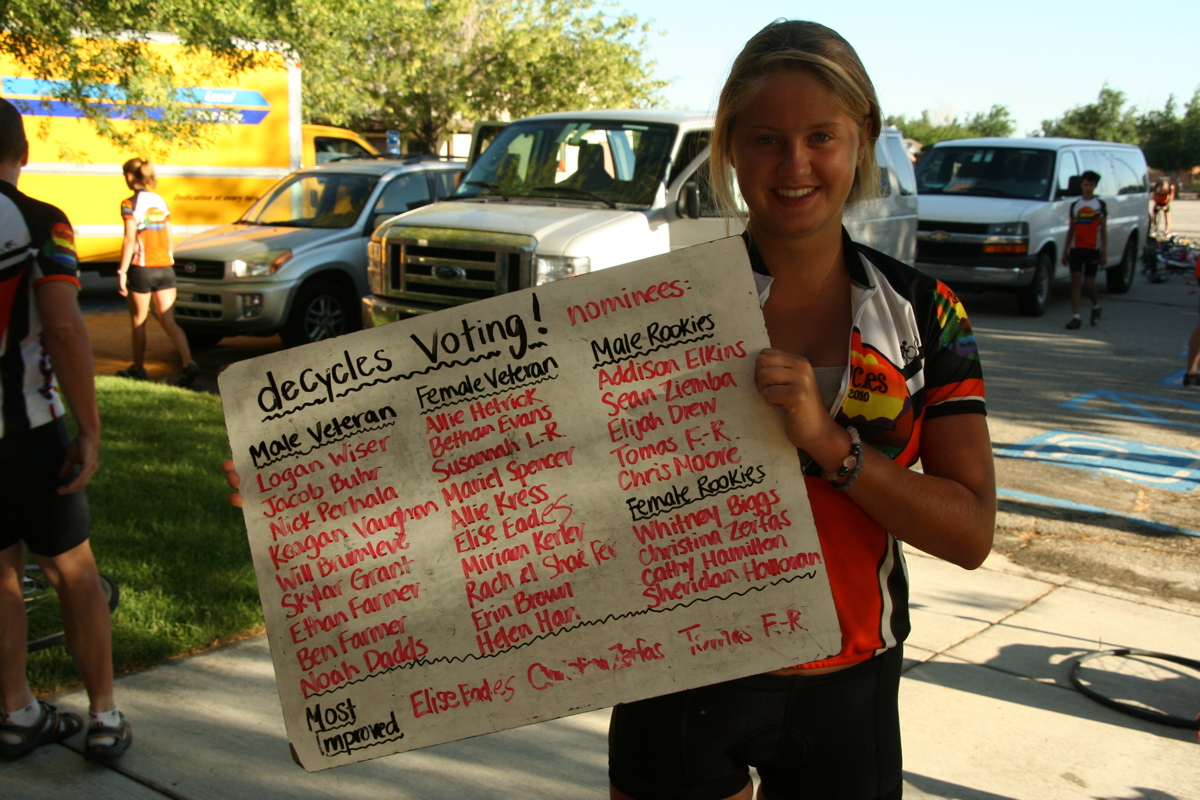 deCycles Voting!
nominees:
Male Veteran
Logan Wiser
Jacob Buhr
Nick Perhala
Keagan Vaughan
Will Brumleve
Skylar Grant
Ethan Farmer
Ben Farmer
Noah Dadds
Female Veteran
Allie Hetrick
Bethan Evans
Susannah L-R.
Mariel Spencer
Allie Kress
Elise Eades
Miriam Kerler
Erin Brown
Male Rookies
Addison Elkins
Sean Ziemba
Elijah Drew
Tomas F.-R.
Chris Moore
Female Rookies
Whitney Biggs
Christina Zerfas
Cathy Hamilton
Sheridan
Most Improved
Elise Eades Christina Zerfas Tomas F.-R.
2010